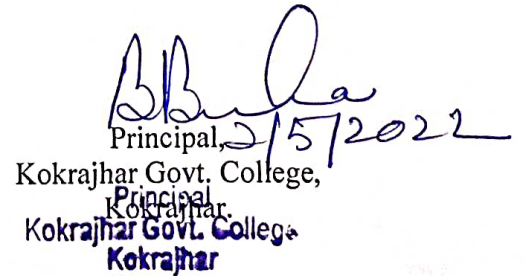 Principal, 2/5/2022
Kokrajhar Govt. College,
Kokrajhar.
Principal
Kokrajhar Govt. College
Kokrajhar